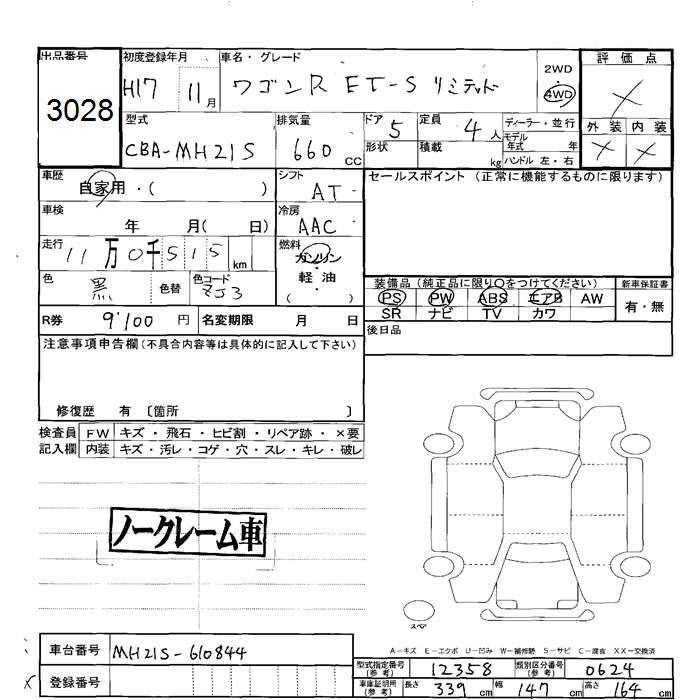 出品番号 初度登録年月 車名・グレード 評価点
3028 H17 11月 ワゴンR FT-S リミテッド 2WD ・ 4WD ×
型式 排気量 ドア 定員 ディーラー・並行 外装 内装
CBA-MH21S 660 CC 5 4人 モデル年式 年 × ×
形状 積載 kg ハンドル 左・右
車歴 自家用・( ) シフト AT セールスポイント (正常に機能するものに限ります)
車検 年 月( 日) 冷房 AAC
走行 11万0千515 km 燃料 ガソリン・軽油 ( )
色 黒 色替 色コード ZJ3
装備品 (純正品に限り○をつけてください) 新車保証書
PS PW ABS エアB AW 有・無
SR ナビ TV カワ
R券 9100 円 名変期限 月 日 後日品
注意事項申告欄 (不具合内容等は具体的に記入して下さい)
修復歴 有 〔箇所 〕
検査員 FW キズ・飛石・ヒビ割・リペア跡・×要
記入欄 内装 キズ・汚レ・コゲ・穴・スレ・キレ・破レ
ノークレーム車
スペア
A－キズ E－エクボ U－凹み W－補修跡 S－サビ C－腐食 XX－交換済
車台番号 MH21S-610844
型式指定番号 (参考) 12358 類別区分番号 (参考) 0624
× 登録番号
車庫証明所 (参考) 長さ 339 cm 幅 147 cm 高さ 164 cm